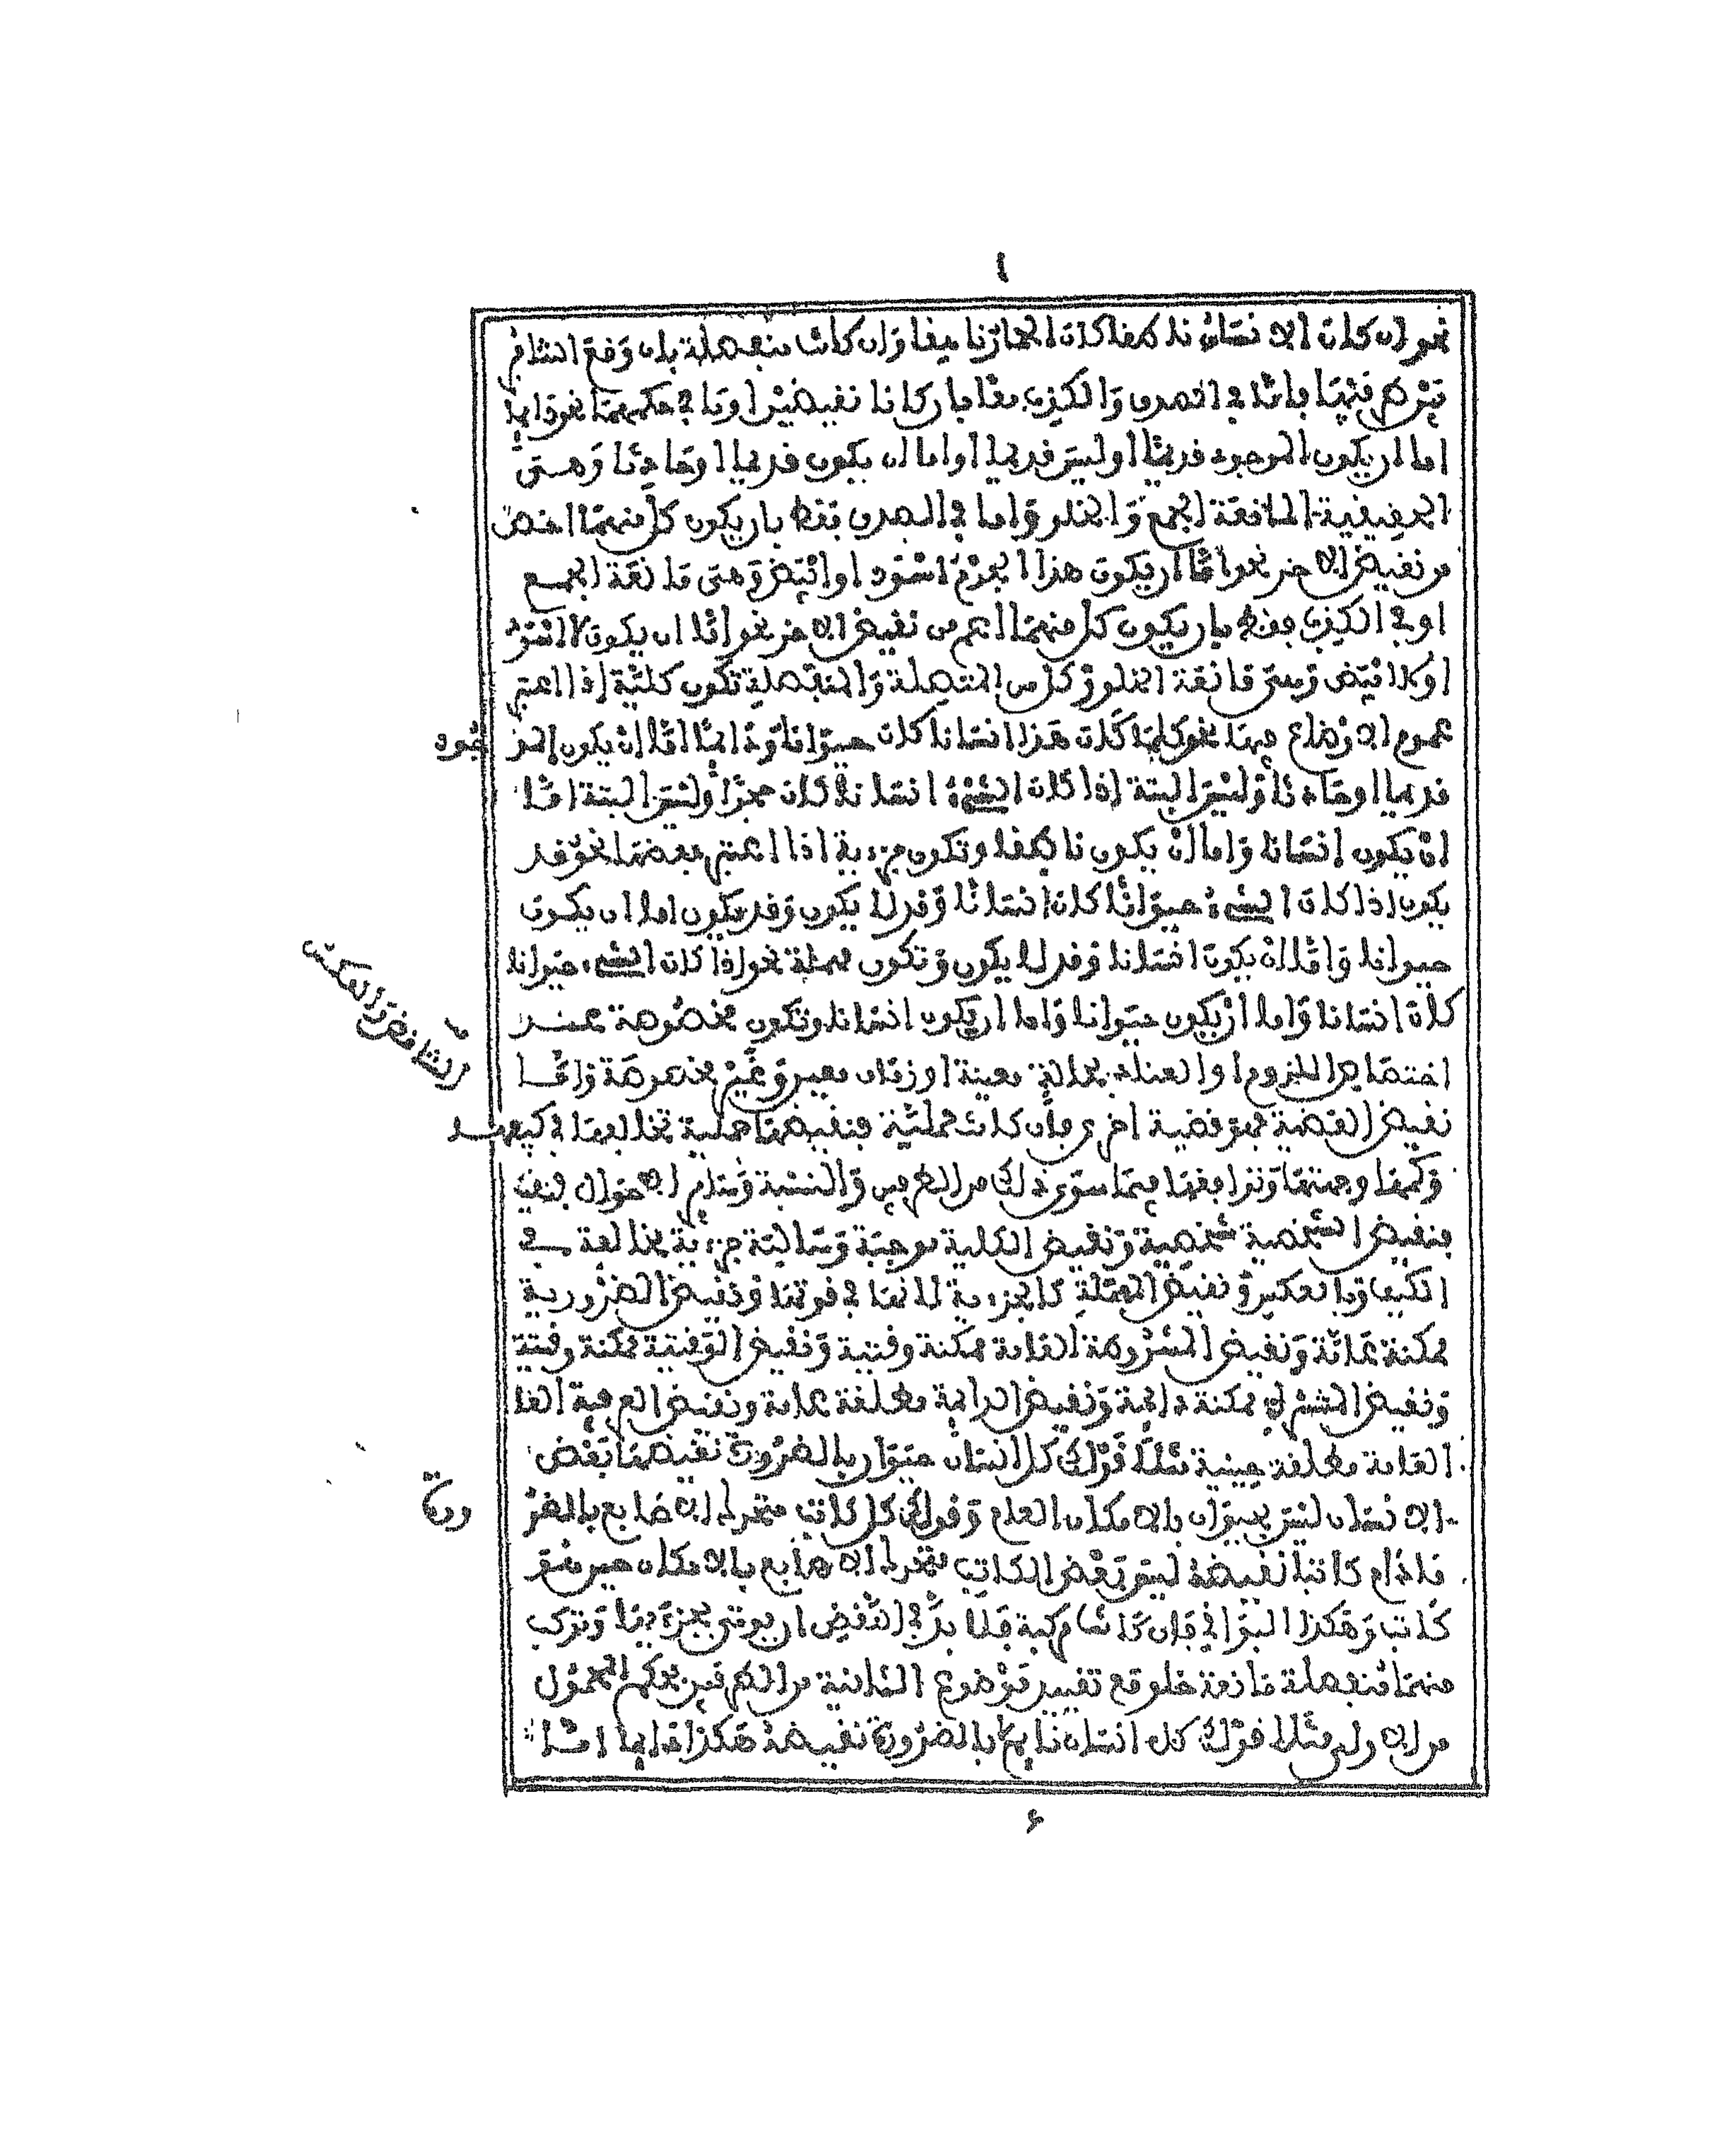 نحو ان كان الانسان ناطقا كان الحمار ناهقا وان كانت منفصلة بان وقع التنافر
بين طرفيها فاما في الصدق والكذب معا بان كانا نقيضين او ما في حكمهما نحو دايما
اما ان يكون الموجود قديما او ليس قديما او اما ان يكون قديما او حادثا وهي
الحقيقية المانعة الجمع والخلو واما في الصدق فقط بان يكون كل منهما اخص
من نقيض الاخر نحو اما ان يكون هذا الجرم اسود او ابيض وهي مانعة الجمع
او في الكذب فقط بان يكون كل منهما اعم من نقيض الاخر نحو اما ان يكون لا اسود
او لا ابيض وهي مانعة الخلو وكل من المتصلة والمنفصلة تكون كلية اذا اعتبر
عموم الاوضاع فيها نحو كلما كان هذا انسانا كان حيوانا ودايما اما ان يكون الموجود
قديما او حادثا وليس البتة اذا كان الشيء انسانا كان حجرا وليس البتة اما
ان يكون انسانا واما ان يكون ناطقا وتكون جزءية اذا اعتبر بعضها نحو قد
يكون اذا كان الشيء حيوانا كان انسانا وقد لا يكون وقد يكون اما ان يكون
حيوانا واما ان يكون انسانا وقد لا يكون وتكون مهملة نحو اذا كان الشيء حيوانا
كان انسانا واما ان يكون حيوانا واما ان يكون انسانا وتكون مخصوصة عند
اختصاص اللزوم او العناد بحالة معينة او زمان معين وغير مخصوصة واما
التناقض والعكس
نقيض القضية فهو قضية اخرى فان كانت حملية فنقيضها حملية تخالفها في كيفها
وكمها وجهتها وتوافقها فيما سوى ذلك من الطرفين والنسبة وساير الاحوال
فنقيض الشخصية شخصية ونقيض الكلية موجبة وسالبة جزءية تخالفه في
الكيف وبالعكس ونقيض المهملة كالجزءية لانها في قوتها ونقيض الضرورية
ممكنة عامة ونقيض المشروطة العامة ممكنة وقتية ونقيض الوقتية ممكنة وقتية
ونقيض المنتشرة ممكنة دايمة ونقيض الدايمة مطلقة عامة ونقيض العرفية العا
العامة مطلقة حينية مثلا قولك كل انسان حيوان بالضرورة نقيضها بعض
الانسان ليس بحيوان بالامكان العام وقولك كل كاتب متحرك الاصابع بالضرورة
مادام كاتبا نقيضه ليس بعض الكاتب متحرك الاصابع بالامكان حين هو
كاتب وهكذا البواقي فان كانت مركبة فلا بد في النقيض ان يوتى بجزءيها وتركب
منهما منفصلة مانعة خلو مع تقييد موضوع الثانية من الطرفين بحكم المحمول
من الاولى مثلا قولك كل انسان نايم بالضرورة نقيضه هكذا دايما اما